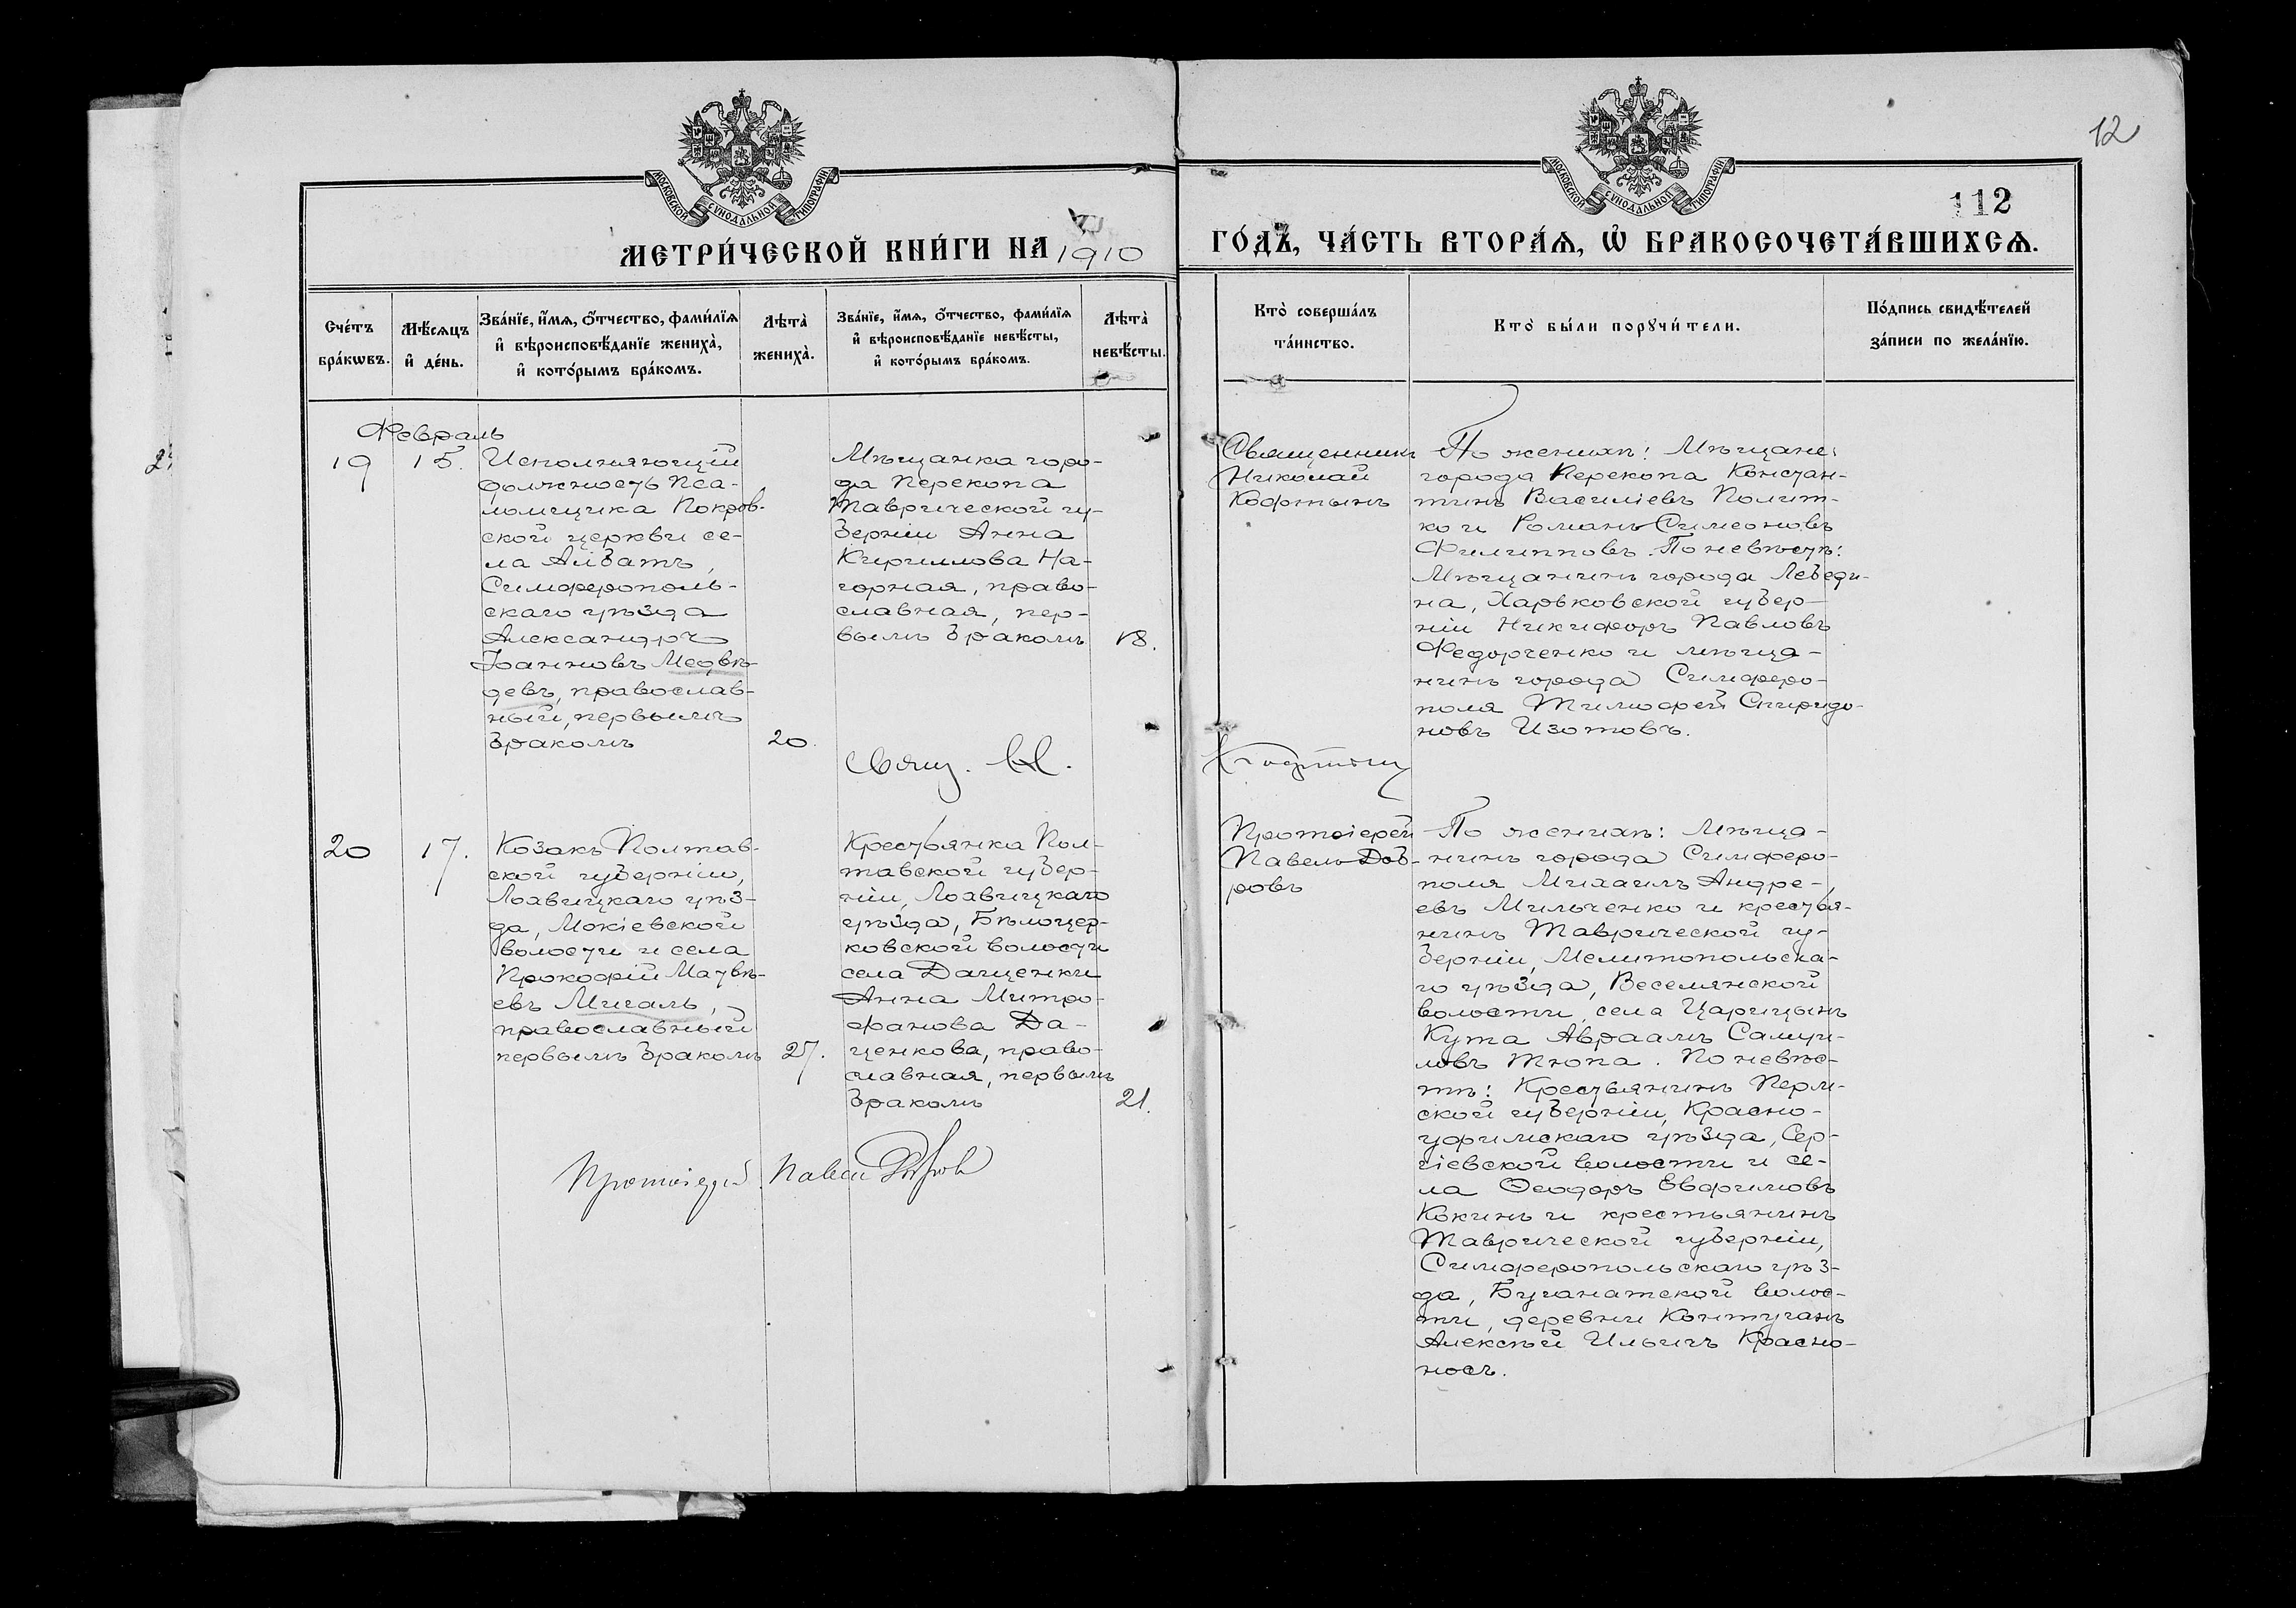 12
112
МОСКОВСКОЙ СѴНОДАЛЬНОЙ ТИПОГРАФІИ
МОСКОВСКОЙ СѴНОДАЛЬНОЙ ТИПОГРАФІИ
МЕТРИ́ЧЕСКОЙ КНИ́ГИ НА 1910
ГО́ДЪ, ЧА́СТЬ ВТОРА́Ѧ, Ѽ БРАКОСОЧЕТА́ВШИХСѦ.
Сче́тъ
бра́кѡвъ.
Мѣ́сѧцъ
и҆ де́нь.
Зва́нїе, и҆́мѧ, ѻ҆́тчество, фами́лїѧ
и҆ вѣроисповѣ́данїе жениха̀,
и҆ кото́рымъ бра́комъ.
Лѣта̀
жениха̀.
Зва́нїе, и҆́мѧ, ѻ҆́тчество, фами́лїѧ
и҆ вѣроисповѣ́данїе невѣ́сты,
и҆ кото́рымъ бра́комъ.
Лѣта̀
невѣ́сты.
Кто̀ соверша́лъ
та́инство.
Кто̀ бы́ли порꙋчи́тели.
По́дпись свидѣ́телей
за́писи по жела́нїю.
Февраль
19
15.
Исполняющій
должность Пса-
ломщика Покров-
ской церкви се-
ла Албатъ,
Симферополь-
скаго уѣзда
Александръ
Іоанновъ Медвѣ-
девъ, православ-
ный, первымъ
бракомъ
20.
Мѣщанка горо-
да Перекопа
Таврической гу-
берніи Анна
Кириллова На-
горная, право-
славная, пер-
вымъ бракомъ
18.
Свящ. Н.
Кофтынъ
Священникъ
Николай
Кофтынъ
По женихѣ: Мѣщане:
города Перекопа Констан-
тинъ Василіевъ Полит-
ко и Романъ Симеоновъ
Филипповъ. По невѣстѣ:
Мѣщанинъ города Лебеди-
на, Харьковской губер-
ніи Никифоръ Павловъ
Федорченко и мѣща-
нинъ города Симферо-
поля Тимофей Спиридо-
новъ Изотовъ.
20
17.
Козакъ Полтав-
ской губерніи,
Лохвицкаго уѣз-
да, Мокіевской
волости и села
Прокофій Матвѣ-
евъ Мигаль,
православный
первымъ бракомъ
27.
Крестьянка Пол-
тавской губер-
ніи, Лохвицкаго
уѣзда, Бѣлоцер-
ковской волости
села Дащенки
Анна Митро-
фанова Да-
щенкова, право-
славная, первымъ
бракомъ
21.
Протоіерей Павелъ Добровъ
Протоіерей
Павелъ Доб-
ровъ
По женихѣ: Мѣща-
нинъ города Симферо-
поля Михаилъ Андре-
евъ Мильченко и крестья-
нинъ Таврической гу-
берніи, Мелитопольска-
го уѣзда, Веселянской
волости, села Царицынъ
Кута Авраамъ Самуи-
ловъ Тюпа. По невѣс-
тѣ: Крестьянинъ Перм-
ской губерніи, Красно-
уфимскаго уѣзда, Сер-
гіевской волости и се-
ла Ѳеодоръ Евфимовъ
Кокинъ и крестьянинъ
Таврической губерніи,
Симферопольскаго уѣз-
да, Булганатской волос-
ти, деревни Контуганъ
Алексѣй Ильичъ Красно-
носъ.